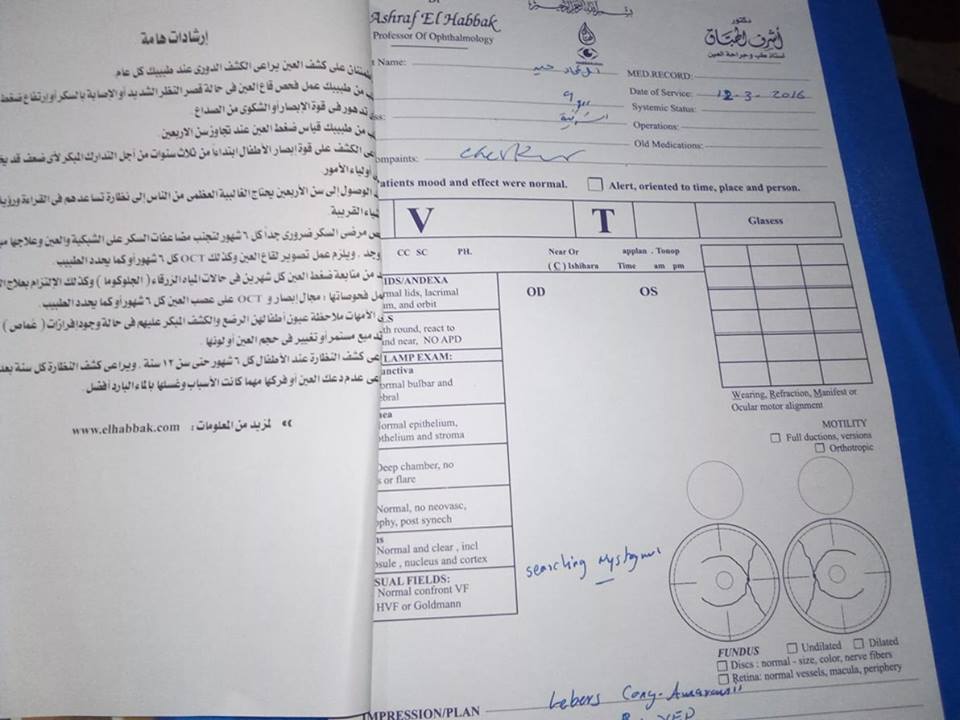 إرشادات هامة
على كشف العين يراعى الكشف الدورى عند طبيبك كل عام.
من طبيبك عمل فحص قاع العين فى حالة قصر النظر الشديد أو الإصابة بالسكر أو إرتفاع ضغط
تدهور فى قوة الإبصار أو الشكوى من الصداع.
من طبيبك قياس ضغط العين عند تجاوز سن الاربعين.
الكشف على قوة إبصار الأطفال ابتداءاً من ثلاث سنوات من أجل التدارك المبكر لأى ضعف قد
أولياء الأمور
الوصول إلى سن الأربعين يحتاج الغالبية العظمى من الناس إلى نظارة تساعدهم فى القراءة ورؤية
القريبة.
مرضى السكر ضرورى جداً كل ٦ شهور لتجنب مضاعفات السكر على الشبكية والعين وعلاجها
وجد . ويلزم عمل تصوير لقاع العين وكذلك OCT كل ٦ شهور أو كما يحدد الطبيب.
من متابعة ضغط العين كل شهرين فى حالات المياه الزرقاء ( الجلوكوما ) وكذلك الإلتزام بعلاج
فحوصاتها : مجال إبصار و OCT على عصب العين كل ٦ شهور أو كما يحدد الطبيب.
الأمهات ملاحظة عيون أطفالهن الرضع والكشف المبكر عليهم فى حالة وجود إفرازات ( غماص )
تدميع مستمر أو تغيير فى حجم العين أو لونها .
كشف النظارة عند الأطفال كل ٦ شهور حتى سن ١٢ سنة . ويراعى كشف النظارة كل سنة
عدم دعك العين أو فركها مهما كانت الأسباب وغسلها بالماء البارد أفضل.
لمزيد من المعلومات : www.elhabbak.com
Ashraf El Habbak
Professor Of Ophthalmology
دكتور
أشرف الهباق
أستاذ طب وجراحة العين
Name:
MED.RECORD:
Date of Service: 12-3-2016
Systemic Status:
Operations:
Old Medications:
omplaints:
atients mood and effect were normal.
Alert, oriented to time, place and person.
V
T
Glasess
CC SC PH.
Near Or
applan . Tonop
( C ) Ishihara
Time am pm
IDS/ANDEXA
rmal lids, lacrimal
and orbit
OD
OS
th round, react to
nd near, NO APD
LAMP EXAM:
anctiva
ormal bulbar and
ebral
ea
ormal epithelium,
othelium and stroma
Deep chamber, no
s or flare
Normal, no neovasc,
phy, post synech
ns
Normal and clear , incl
psule , nucleus and cortex
SUAL FIELDS:
Normal confront VF
HVF or Goldmann
searching nystagmus
Wearing, Refraction, Manifest or
Ocular motor alignment
MOTILITY
Full ductions, versions
Orthotropic
FUNDUS
Undilated
Dilated
Discs : normal - size, color, nerve fibers
Retina: normal vessels, macula, periphery
IMPRESSION/PLAN
Lebers Cong. Amaurosis